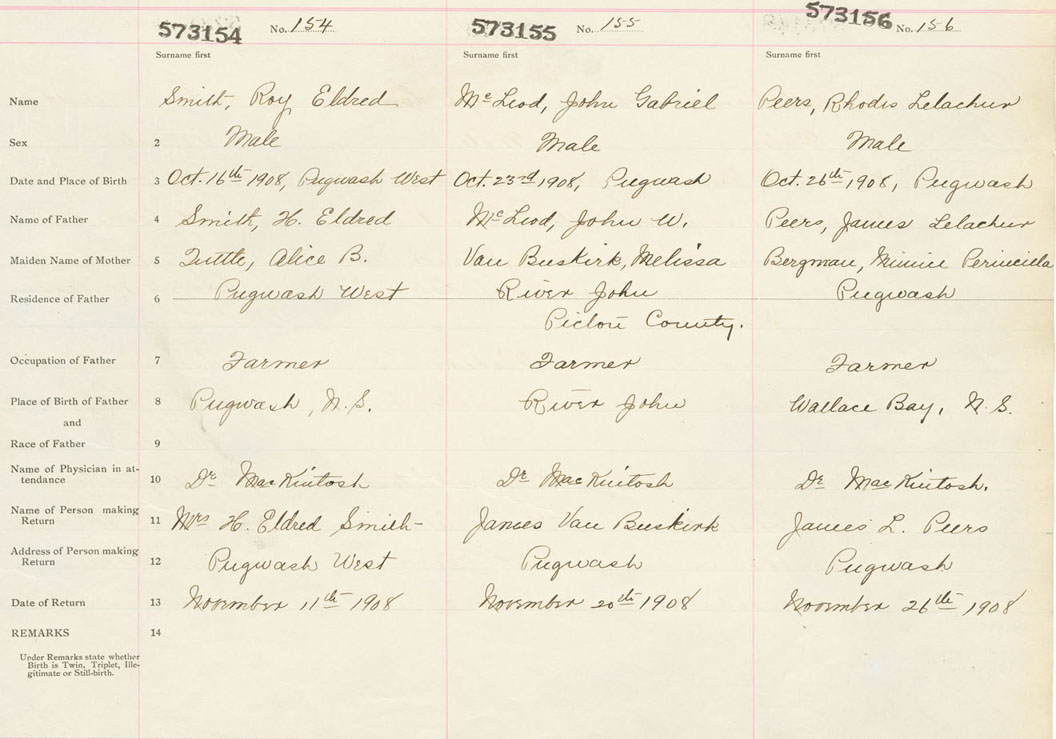 573154 No. 154 573155 No. 155 573156 No. 156
Surname first Surname first Surname first
Name Smith, Roy Eldred McLeod, John Gabriel Peers, Rhodis Lelacheur
Sex 2 Male Male Male
Date and Place of Birth 3 Oct. 16th 1908, Pugwash West Oct. 23rd 1908, Pugwash Oct. 26th 1908, Pugwash
Name of Father 4 Smith, H. Eldred McLeod, John W. Peers, James Lelacheur
Maiden Name of Mother 5 Tuttle, Alice B. Van Buskirk, Melissa Bergman, Minnie
Residence of Father 6 Pugwash West River John Pugwash
Pictou County.
Occupation of Father 7 Farmer Farmer Farmer
Place of Birth of Father 8 Pugwash, N.S. River John Wallace Bay, N.S.
and
Race of Father 9
Name of Physician in at-
tendance 10 Dr MacKintosh Dr MacKintosh Dr MacKintosh.
Name of Person making
Return 11 Mrs H. Eldred Smith James Van Buskirk James L. Peers
Address of Person making
Return 12 Pugwash West Pugwash Pugwash
Date of Return 13 November 11th 1908 November 20th 1908 November 26th 1908
REMARKS 14
Under Remarks state whether
Birth is Twin, Triplet, Ille-
gitimate or Still-birth.